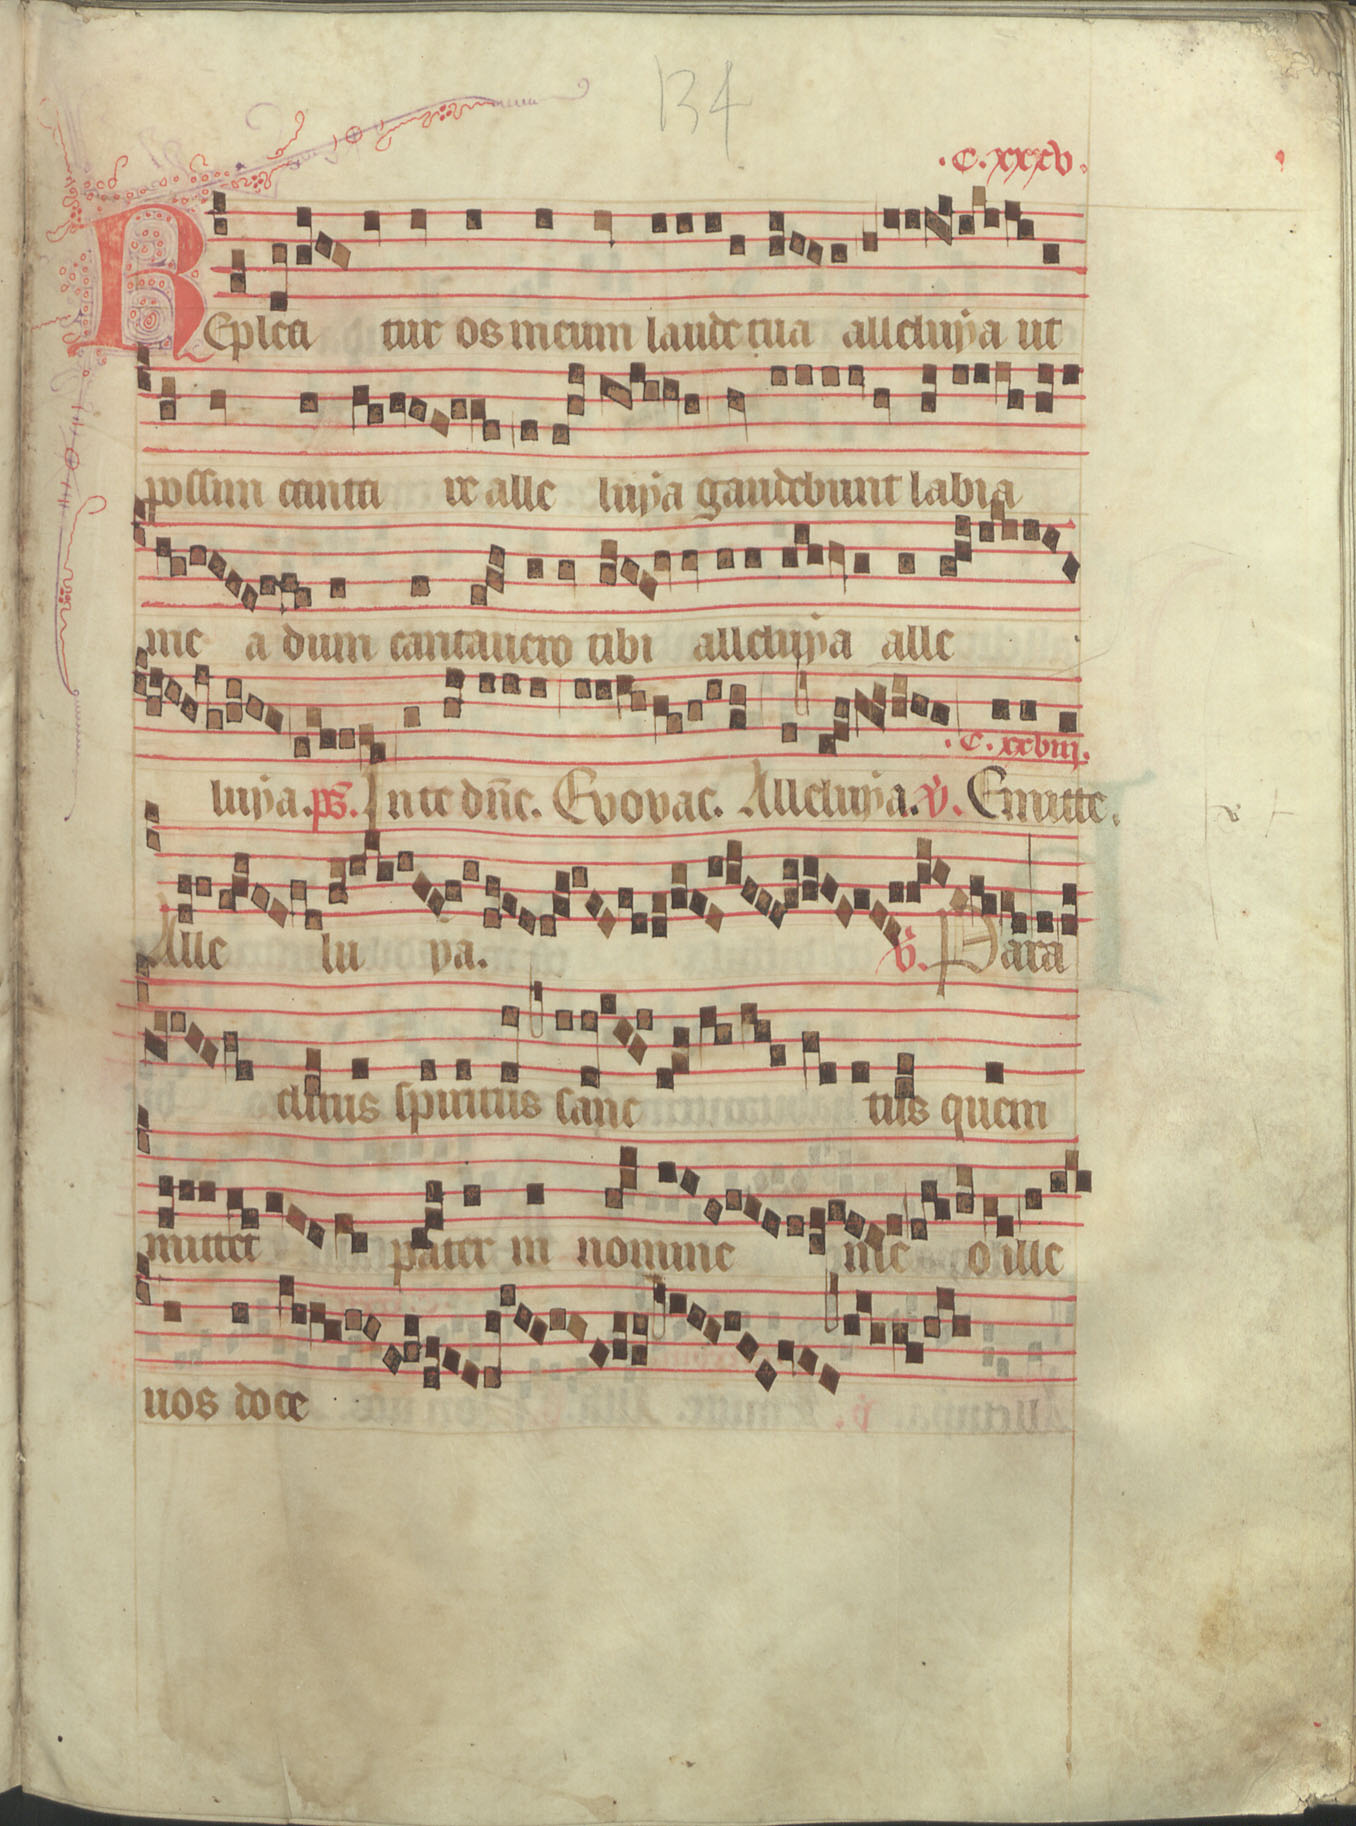 134
.c.xxxv.
REpleti tur os meum laude tua alleluya ut
possim canta re alle luya gaudebunt labia
me a dum cantavero tibi alleluya alle
.c.xxviij.
luya. ps. In te dñe. Evovae. Alleluya. v. Emitte.
Alle lu ya. v. Para
clitus spiritus sanc tus quem
mittet pater in nomine me o ille
vos doce